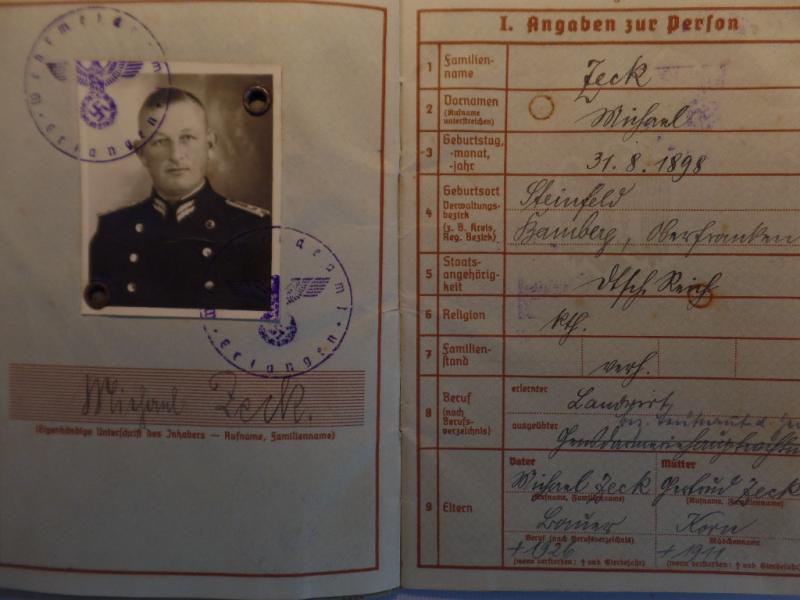 Wehrmeldeamt
Erlangen
Wehrmeldeamt 1
Erlangen
Michael Zeck.
(Eigenhändige Unterschrift des Inhabers — Rufname, Familienname)
I. Angaben zur Person
1 Familien-
name
Zeck
2 Vornamen
(Rufname
unterstreichen)
Michael
3 Geburtstag,
-monat,
-jahr
31. 8. 1898
4 Geburtsort
Verwaltungs-
bezirk
(z. B. Kreis,
Reg. Bezirk)
Steinfeld
Bamberg, Oberfranken
5 Staats-
angehörig-
keit
Dtsch. Reich
6 Religion
kth.
7 Familien-
stand
verh.
8 Beruf
(nach
Berufs-
verzeichnis)
erlernter
Landwirt
ausgeübter
Bez. Leutnant d.
9 Eltern
Vater
Michael Zeck
(Rufname, Familienname)
Bauer
Beruf (nach Berufsverzeichnis)
+ 1926
(wenn verstorben: † und Sterbejahr)
Mutter
Gertrud Zeck
(Rufname, Familienname)
Korn
Mädchenname
+ 1911
(wenn verstorben: † und Sterbejahr)